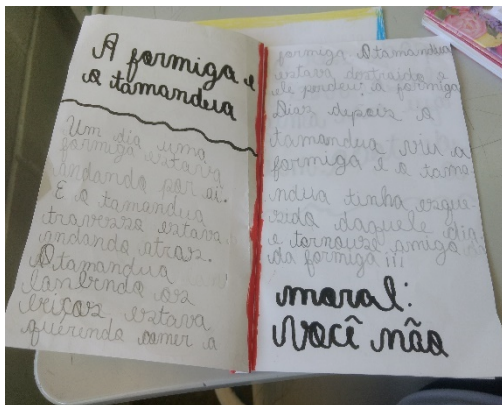 A formiga e
o tamandua
Um dia uma
formiga estava
andando por ai.
E o tamandua
travesso estava
andando atras.
O tamandua
lanbendo os
beiços, estava
querendo comer a
formiga O tamandua
estava destraido e
ele perdeu a formiga
Dias depois o
tamandua viu a
formiga e o tama
ndua tinha esque
sido daquele dia
e tornouse amigo
da formiga!!!
moral:
Você não